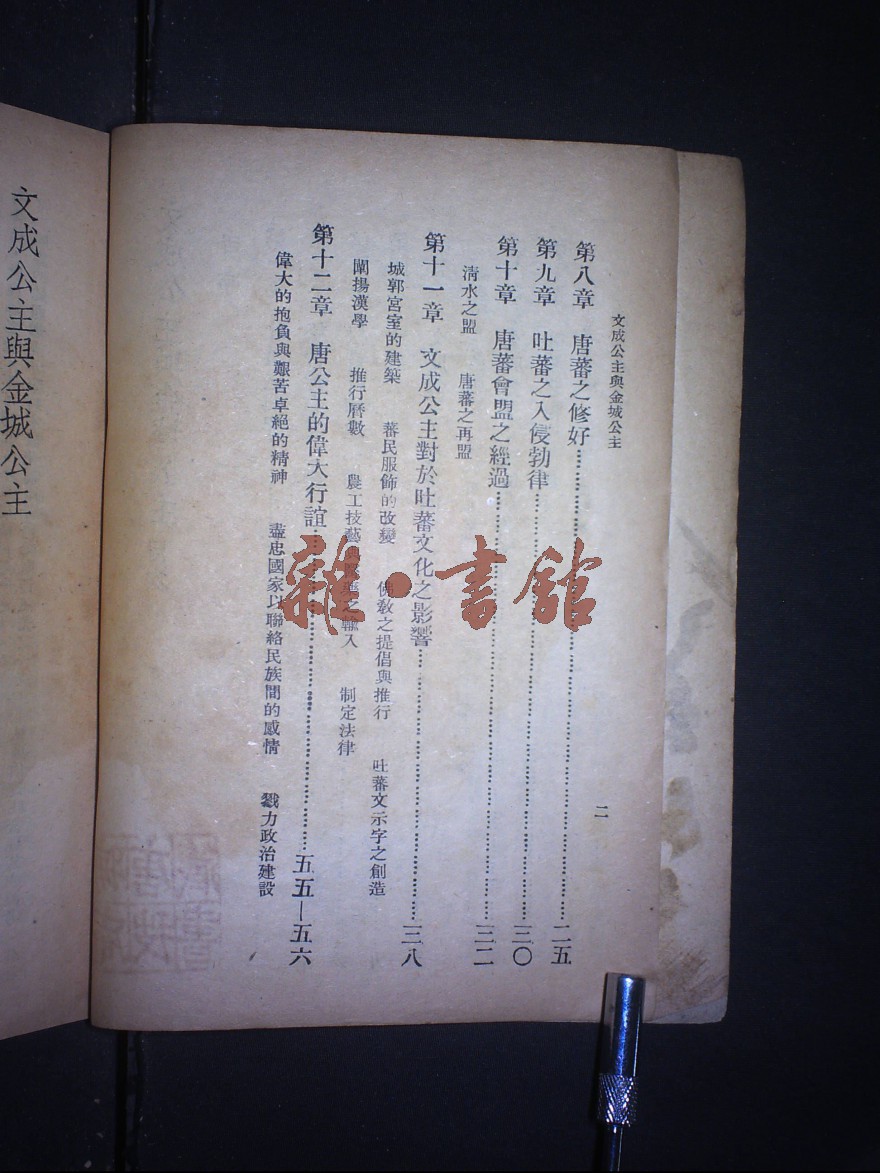 文成公主與金城公主
二
第八章　唐蕃之修好……二五
第九章　吐蕃之入侵勃律……三〇
第十章　唐蕃會盟之經過……三二
清水之盟　唐蕃之再盟
第十一章　文成公主對於吐蕃文化之影響……三八
城郭宮室的建築　蕃民服飾的改變　佛敎之提倡與推行　吐蕃文示字之創造
闡揚漢學　推行曆數　農工技藝　輸入　制定法律
第十二章　唐公主的偉大行誼……五五—五六
偉大的抱負與艱苦卓絕的精神　盡忠國家以聯絡民族間的感情　戮力政治建設
文成公主與金城公主
雜·書館